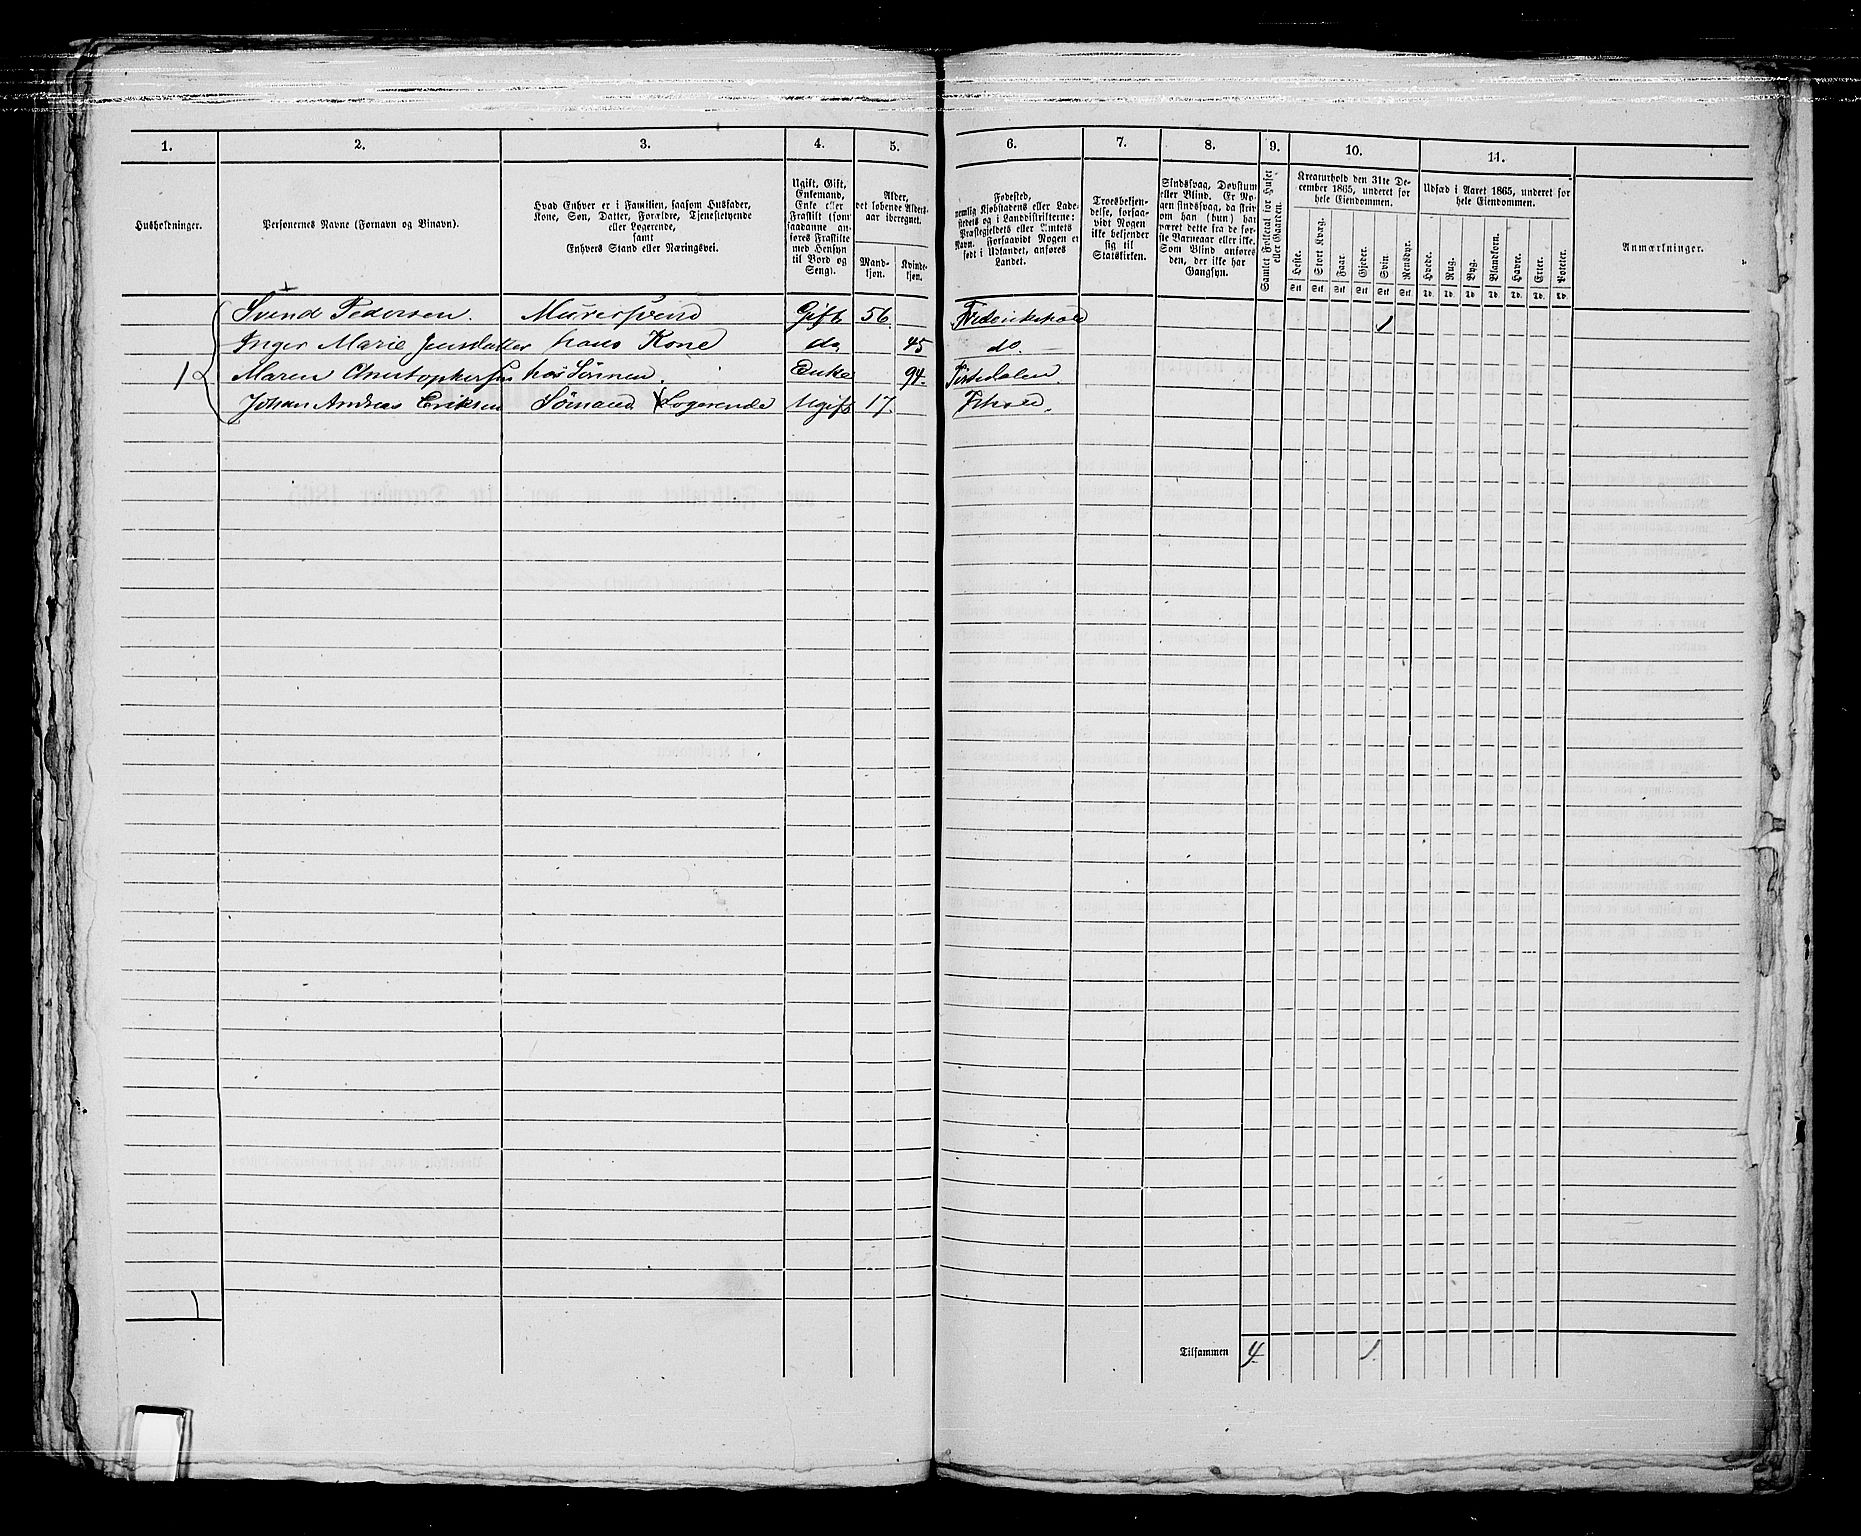 1. 2. 3. 4. 5. 6. 7. 8. 9. 10. 11.
Husholdninger.
Personernes Navne (Fornavn og Binavn).
Hvad Enhver er i Familien, saasom Husfader,
Kone, Søn, Datter, Forældre, Tjenestetyende
eller Logerende,
samt
Enhvers Stand eller Næringsvei.
Ugift, Gift,
Enkemand,
Enke eller
Fraskilt (som
saadanne an-
føres Fraskilte
med Hensyn
til Bord og
Seng).
Alder,
det løbende Alders-
aar iberegnet.
Mand-
kjøn.
Kvinde-
kjøn.
Fødested,
nemlig Kjøbstadens eller Lade-
stedets og i Landdistrikterne:
Præstegjeldets eller Amtets
Navn. Forsaavidt Nogen er
født i Udlandet, anføres
Landet.
Troesbekjen-
delse, forsaa-
vidt Nogen
ikke bekjender
sig til
Statskirken.
Sindssvag, Døvstum
eller Blind. Er No-
gen sindssvag, da skriv
om han (hun) har
været dette fra de før-
ste Barneaar eller ikke.
Som Blind anføres
den, der ikke har
Gangsyn.
Samlet Folketal for Huset
eller Gaarden.
Kreaturhold den 31te De-
cember 1865, underet for
hele Eiendommen.
Heste. Stort Kvæg. Faar. Gjeder. Svin. Rensdyr.
Stk. Stk. Stk. Stk. Stk. Stk.
Udsæd i Aaret 1865, underet for
hele Eiendommen.
Hvede. Rug. Byg. Blandkorn. Havre. Erter. Poteter.
Td. Td. Td. Td. Td. Td. Td.
Anmærkninger.
Svend Pedersen. Murersvend Gift 56. Frederikshald 1
Inger Marie Jensdatter hans Kone do. 45 do.
1 Maren Christophersen hos Sønnen. Enke 94.
Johan Andreas Eriksen Sømand. Logerende Ugift 17. Frhald.
1
Tilsammen 4 1.